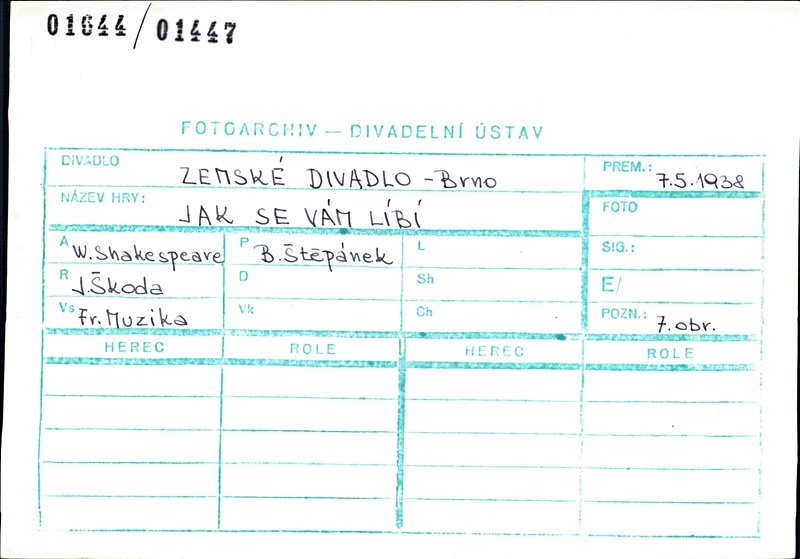 01644/01447
FOTOARCHIV — DIVADELNÍ ÚSTAV
DIVADLO ZEMSKÉ DIVADLO - Brno PREM.: 7.5.1938
NÁZEV HRY: JAK SE VÁM LÍBÍ FOTO
A W. Shakespeare P B. Štěpánek L SIG.:
R J. Škoda D Sh E/
Vs Fr. Muzika Vk Ch POZN.: 7. obr.
HEREC ROLE HEREC ROLE